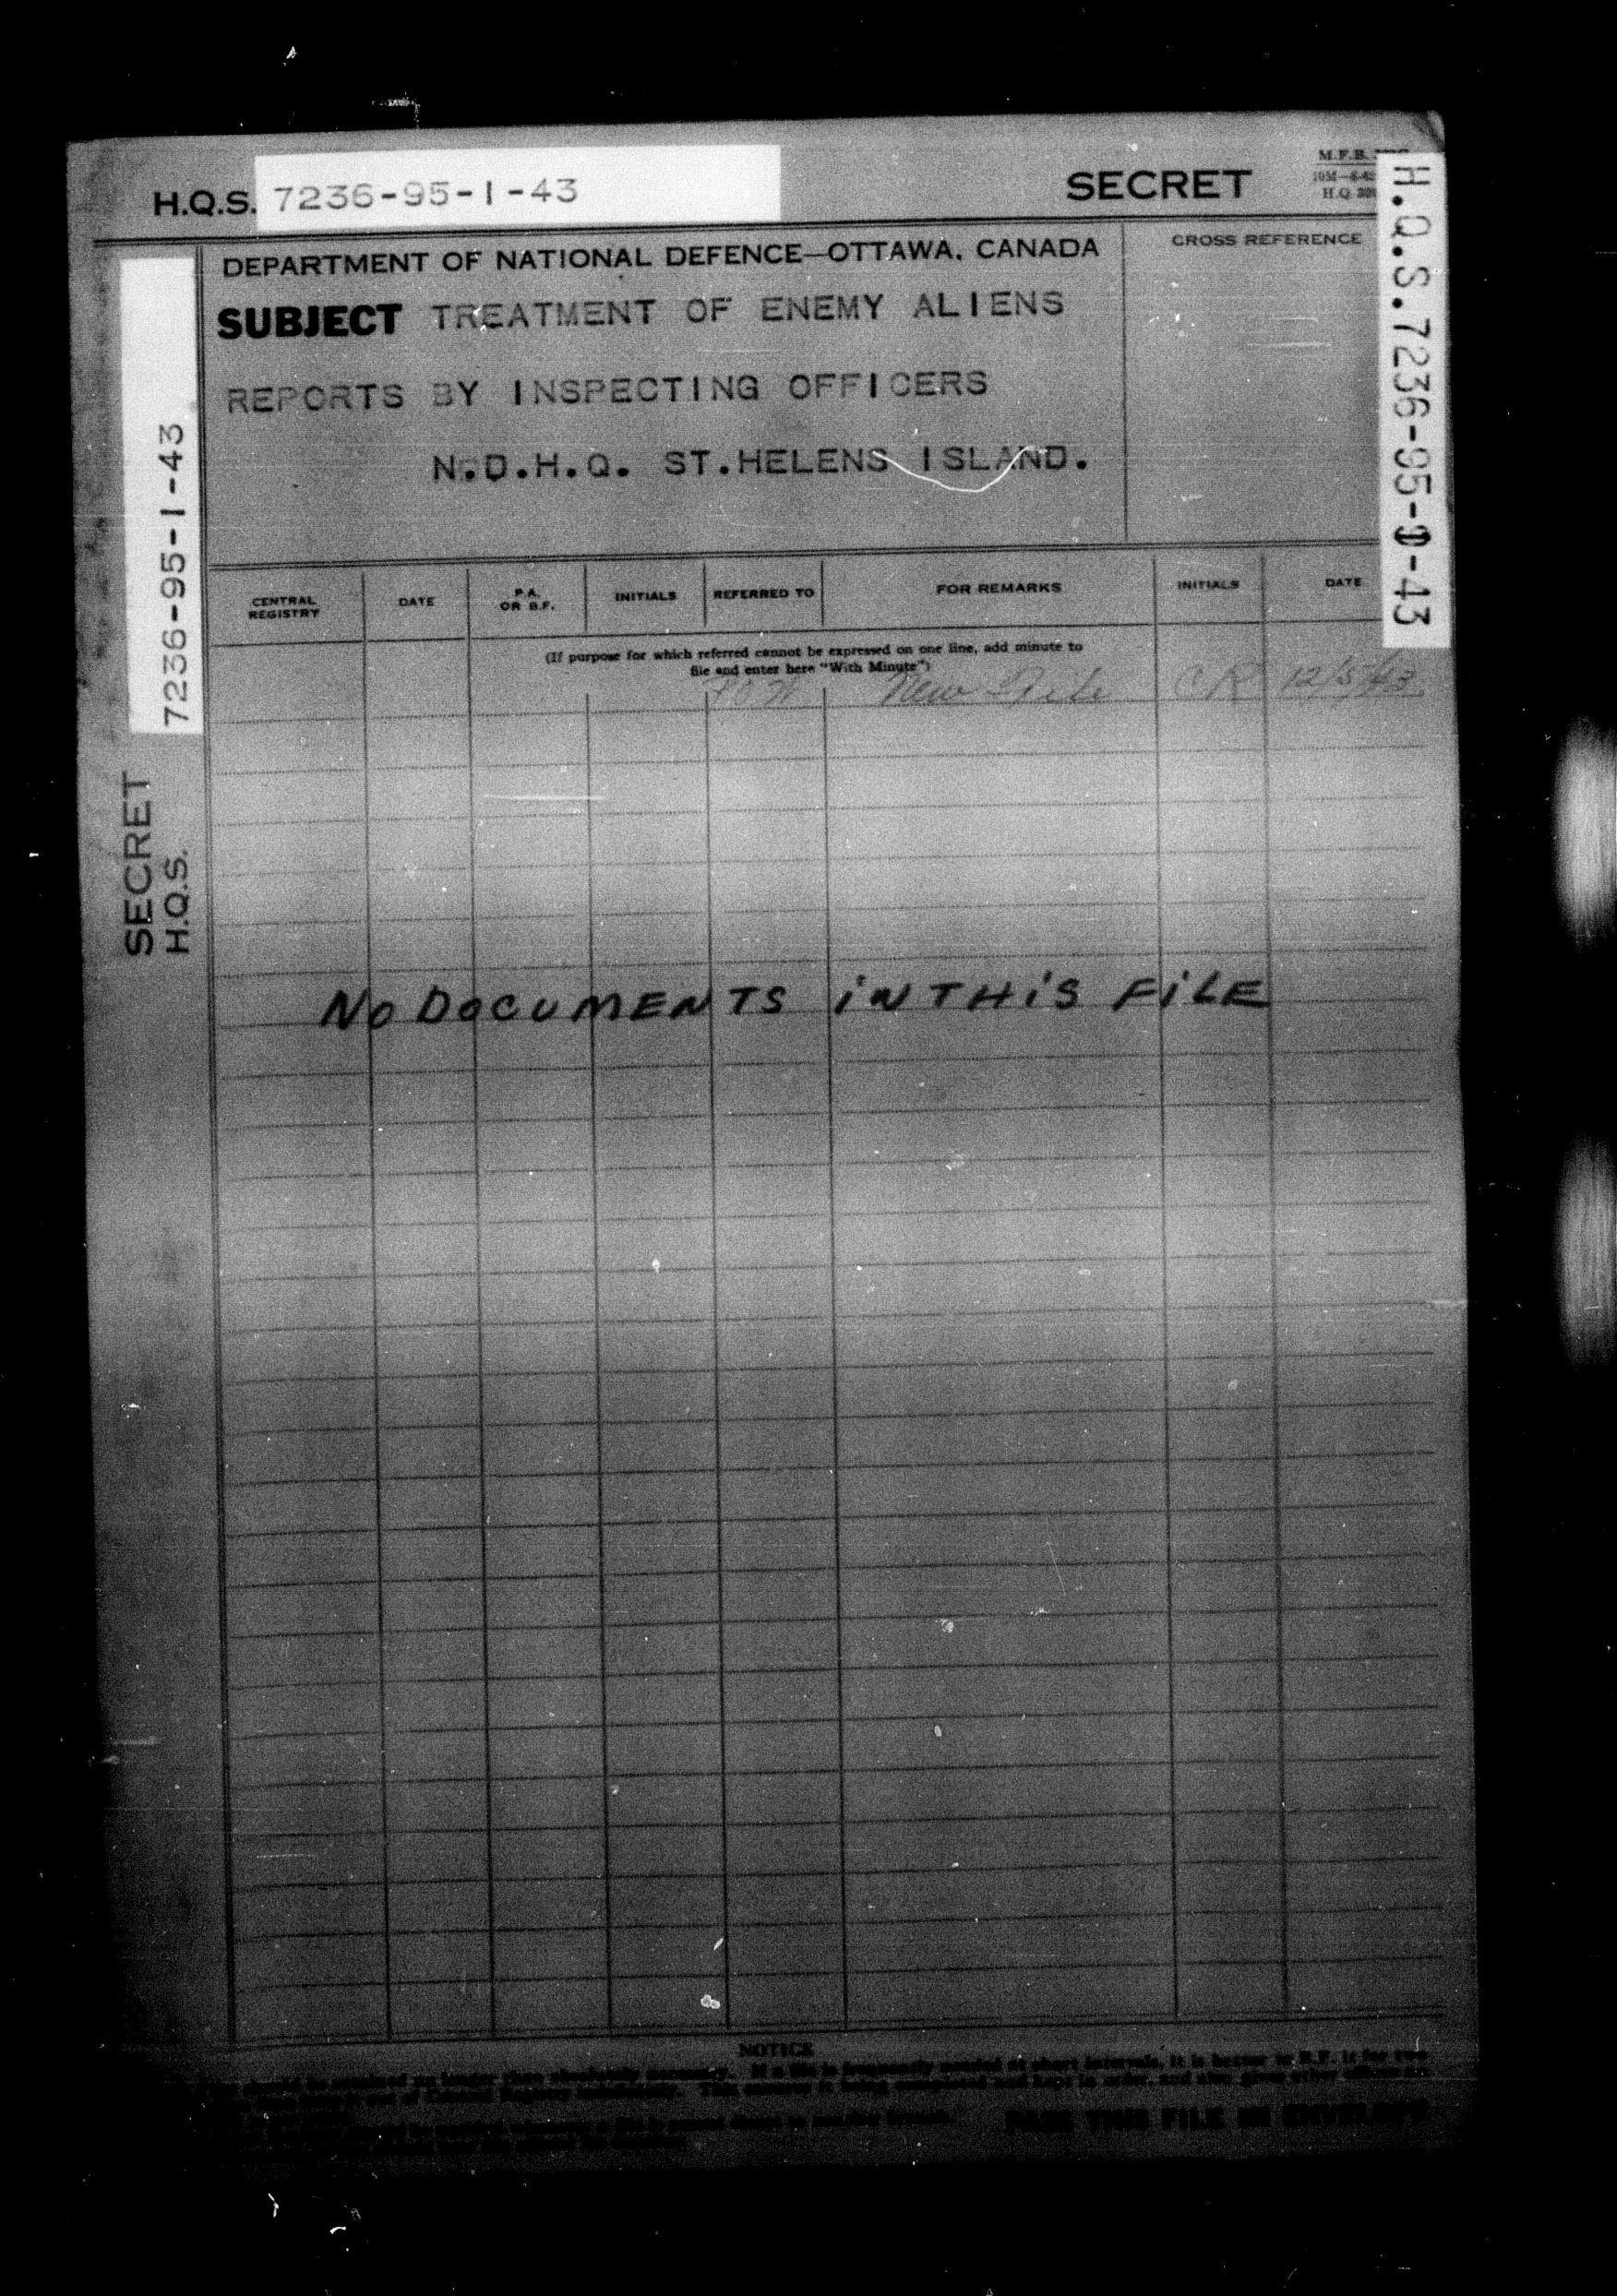 H.Q.S. 7236-95-1-43
SECRET
M.F.B.
H.Q.
DEPARTMENT OF NATIONAL DEFENCE—OTTAWA, CANADA
CROSS REFERENCE
SUBJECT TREATMENT OF ENEMY ALIENS
REPORTS BY INSPECTING OFFICERS
N.D.H.Q. ST.HELENS ISLAND.
H.Q.S.7236-95-1-43
7236-95-1-43
SECRET
H.Q.S.
CENTRAL REGISTRY
DATE
P.A. OR B.F.
INITIALS
REFERRED TO
FOR REMARKS
INITIALS
DATE
(If purpose for which referred cannot be expressed on one line, add minute to
file and enter here "With Minute")
New File CR 12/5/43
NO DOCUMENTS iN THiS FiLE
NOTICE
PASS THIS FILE IN ENVELOPE